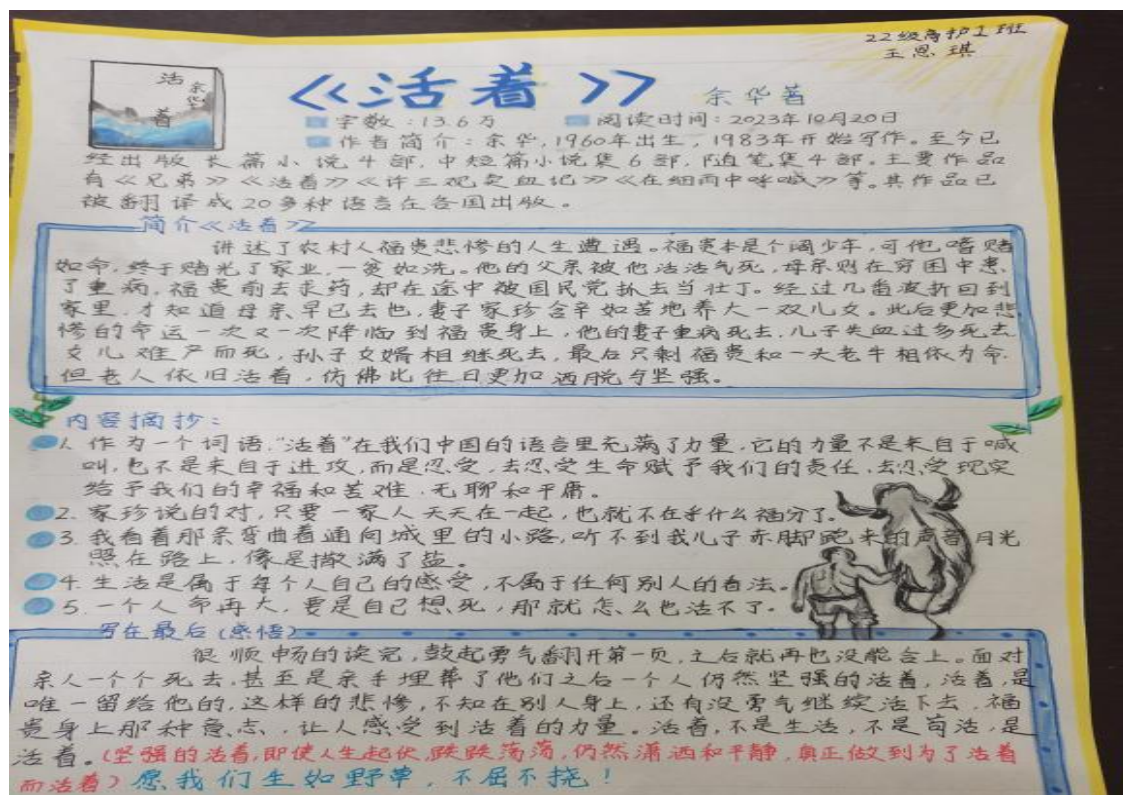 22级高护1班
王恩琪
活着
余华
《活着》 余华著
字数：13.6万 阅读时间：2023年10月20日
作者简介：余华，1960年出生，1983年开始写作。至今已
经出版长篇小说4部，中短篇小说集6部，随笔集4部。主要作品
有《兄弟》《活着》《许三观卖血记》《在细雨中呼喊》等。其作品已
被翻译成20多种语言在各国出版。
简介《活着》
讲述了农村人福贵悲惨的人生遭遇。福贵本是个阔少年，可他嗜赌
如命，终于赌光了家业，一贫如洗。他的父亲被他活活气死，母亲则在穷困中患
了重病，福贵前去求药，却在途中被国民党抓去当壮丁。经过几番波折回到
家里，才知道母亲早已去世，妻子家珍含辛如苦地养大一双儿女。此后更加悲
惨的命运一次又一次降临到福贵身上，他的妻子重病死去，儿子失血过多死去
女儿难产而死，孙子女婿相继死去，最后只剩福贵和一头老牛相依为命.
但老人依旧活着，仿佛比往日更加洒脱与坚强。
内容摘抄：
1. 作为一个词语，“活着”在我们中国的语言里充满了力量，它的力量不是来自于喊
叫，也不是来自于进攻，而是忍受，去忍受生命赋予我们的责任，去忍受现实
给予我们的幸福和苦难、无聊和平庸。
2. 家珍说的对，只要一家人天天在一起，也就不在乎什么福分了。
3. 我看着那条弯曲着通向城里的小路，听不到我儿子赤脚跑来的声音，月光
照在路上，像是撒满了盐。
4. 生活是属于每个人自己的感受，不属于任何别人的看法。
5. 一个人命再大，要是自己想死，那就怎么也活不了。
写在最后（感悟）
很顺畅的读完，鼓起勇气翻开第一页，之后就再也没能合上。面对
亲人一个个死去，甚至是亲手埋葬了他们之后一个人仍然坚强的活着，活着，是
唯一留给他的，这样的悲惨，不知在别人身上，还有没勇气继续活下去，福
贵身上那种意志，让人感受到活着的力量。活着，不是生活，不是苟活，是
活着。（坚强的活着，即使人生起伏，跌跌荡荡，仍然潇洒和平静，真正做到为了活着
而活着）愿我们生如野草，不屈不挠！